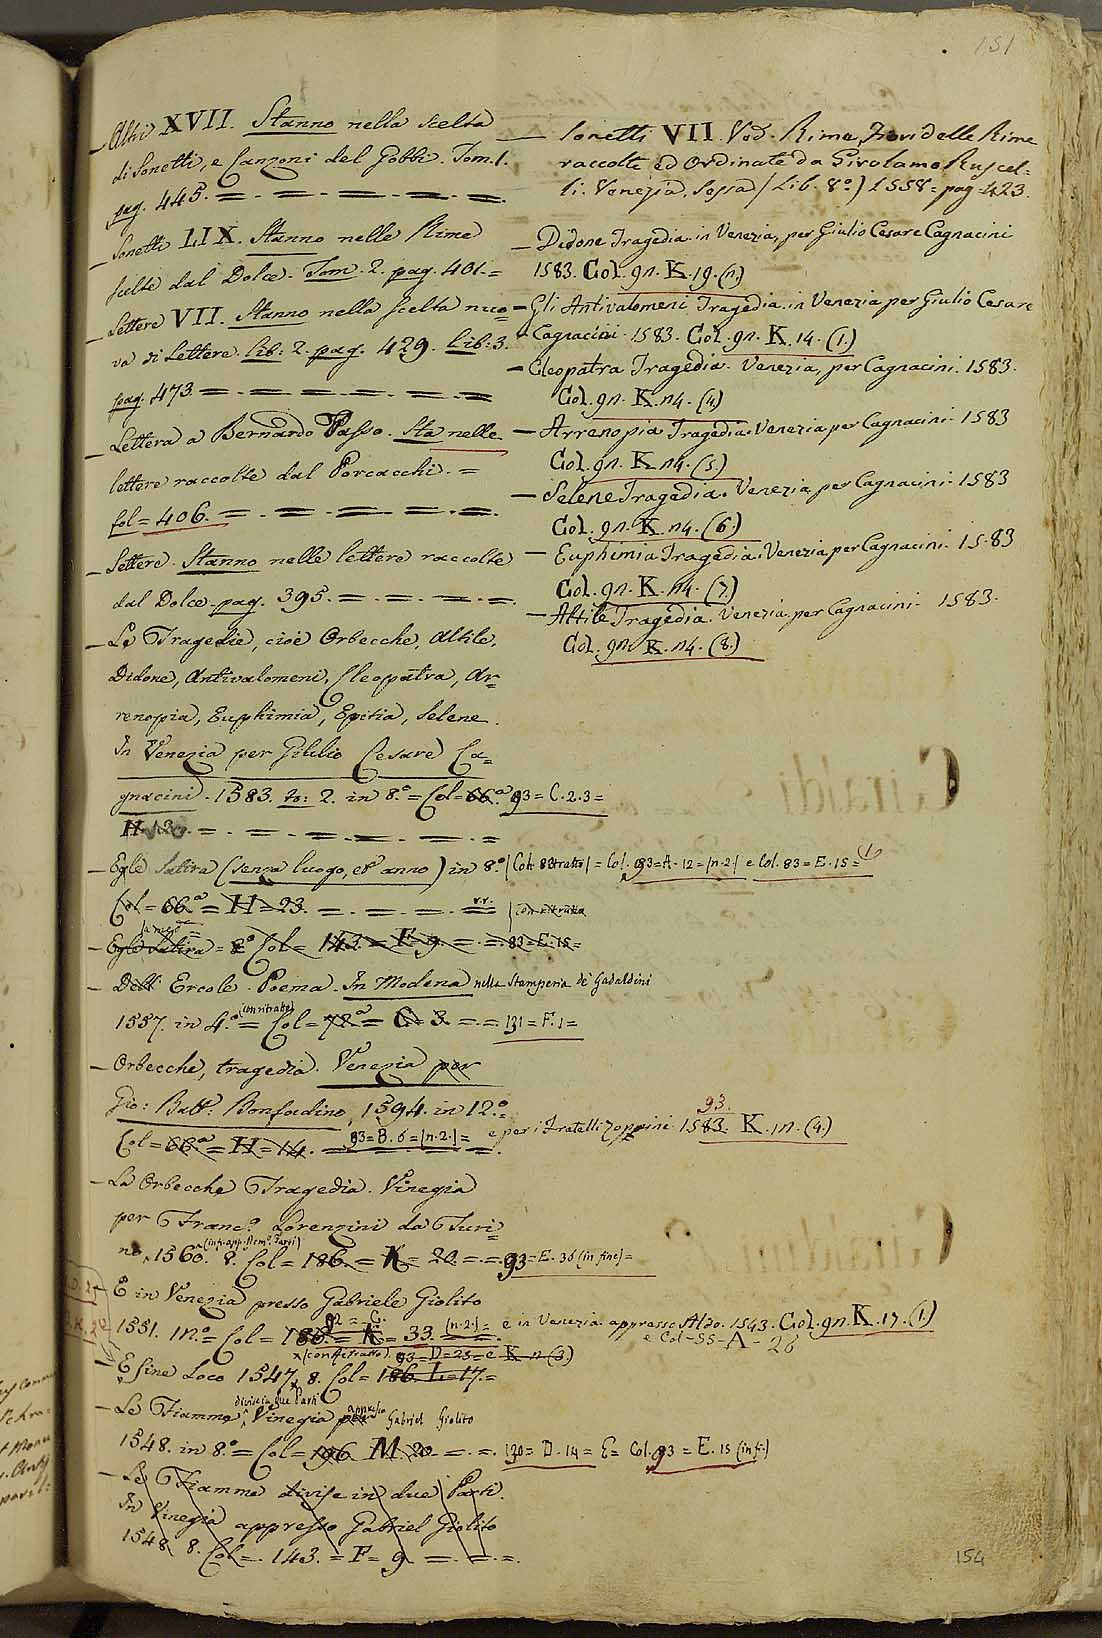 151
– Altri XVII. Stanno nella scelta
di Sonetti, e Canzoni del Gobbi. Tom. 1.
pag. 445. = = = = = =
– Sonetti LIX. Stanno nelle Rime
scelte dal Dolce. Tom. 2. pag. 401. =
– Lettere VII. Stanno nella scelta nuo=
va di Lettere. lib: 2. pag. 429. lib: 3.
pag. 473. = = = = = =
– Lettera a Bernardo Tasso. Sta nelle
lettere raccolte dal Porcacchi. =
fol = 406. = = = = = =
– Lettere. Stanno nelle lettere raccolte
dal Dolce. pag. 395. = = = =
– Le Tragedie, cioè Orbecche, Altile,
Didone, Antivalomeni, Cleopatra, Ar=
renopia, Euphimia, Epitia, Selene.
In Venezia per Giulio Cesare Ca=
gnacini. 1583. to: 2. in 8.° = Col = 66.ª 93 = C. 2. 3 =
H. = = = = = =
– Egle Satira (senza luogo, et anno) in 8.° = Col. 93 = A. 12 = |n. 2| e Col. 83 = E. 15 =
Col = 66.ª = H = 23. = = = =
– Egle Satira = 8.° Col = 143. = F = 9. = = 83 = E. 15 =
– Dell' Ercole. Poema. In Modena nella Stamperia de' Gadaldini
1557. in 4.° (con ritratto) = Col = 72.ª = C = 3. = = 131 = F. 1 =
– Orbecche, tragedia. Venezia per
Gio: Batt: Bonfadino, 1594. in 12.° =
Col = 66.ª = H = 14. 93 = B. 6 = |n. 2.| = e per i Fratelli Zoppini 1583. 93. K. 1n. (4.)
– La Orbecche Tragedia. Vinegia
per Franc.° Lorenzini da Turi=
no. 1560. 8. Col = 186. = K = 20. = = 93 = E. 36 (in fine) =
– E in Venezia presso Gabriele Giolito
1551. 12.° = Col = 186. = K = 33. |n. 2.| = e in Venezia appresso Aldo. 1543. Col. gn. K. 17. (1.)
e Col – 55 – A – 26
(con Ritratto) 93 = D = 25 = e K. n (3.)
– E sine Loco 1547. 8. Col = 186. L = 17. =
– Le Fiamme divise in due Parti Vinegia per appresso Gabriel Giolito
1548. in 8.° = Col = 196. M. 20. = = 130 = D. 14 = E = Col. 93 = E. 15 (in fi.)
– Le Fiamme divise in due Parti.
In Vinegia appresso Gabriel Giolito
1548. 8. Col = 143. = F = 9 = = =
– Sonetti VII. Ved. Rime. Fiori delle Rime
raccolte ed Ordinate da Girolamo Ruscel=
li. Venezia. Sessa / Lib. 8.°) 1558 = pag = 423.
– Didone Tragedia in Venezia, per Giulio Cesare Cagnacini
1583. Col. gn. K. 19. (n.)
– Gli Antivalomeni Tragedia in Venezia per Giulio Cesare
Cagnacini. 1583. Col. gn. K. 14. (1.)
– Cleopatra Tragedia. Venezia, per Cagnacini. 1583.
Col. gn. K. n4. (4)
– Arrenopia Tragedia. Venezia per Cagnacini. 1583
Col. gn. K. n4. (5.)
– Selene Tragedia. Venezia per Cagnacini. 1583
Col. gn. K. n4. (6.)
– Euphimia Tragedia. Venezia per Cagnacini. 1583
Col. gn. K. n4. (7.)
– Altile Tragedia. Venezia per Cagnacini. 1583.
Col. gn. K. n4. (8.)
154